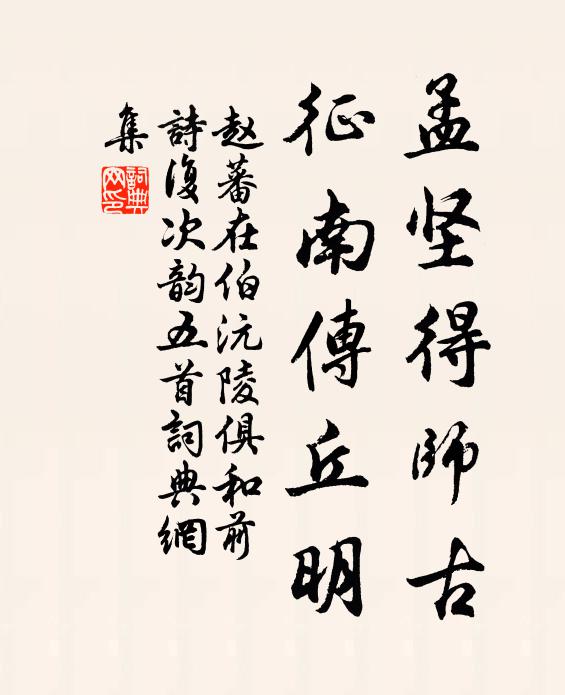 孟坚得師古
征南傳丘明
赵蕃在伯沅陵俱和前
詩復次韵五首詞典網
集
詞典网印